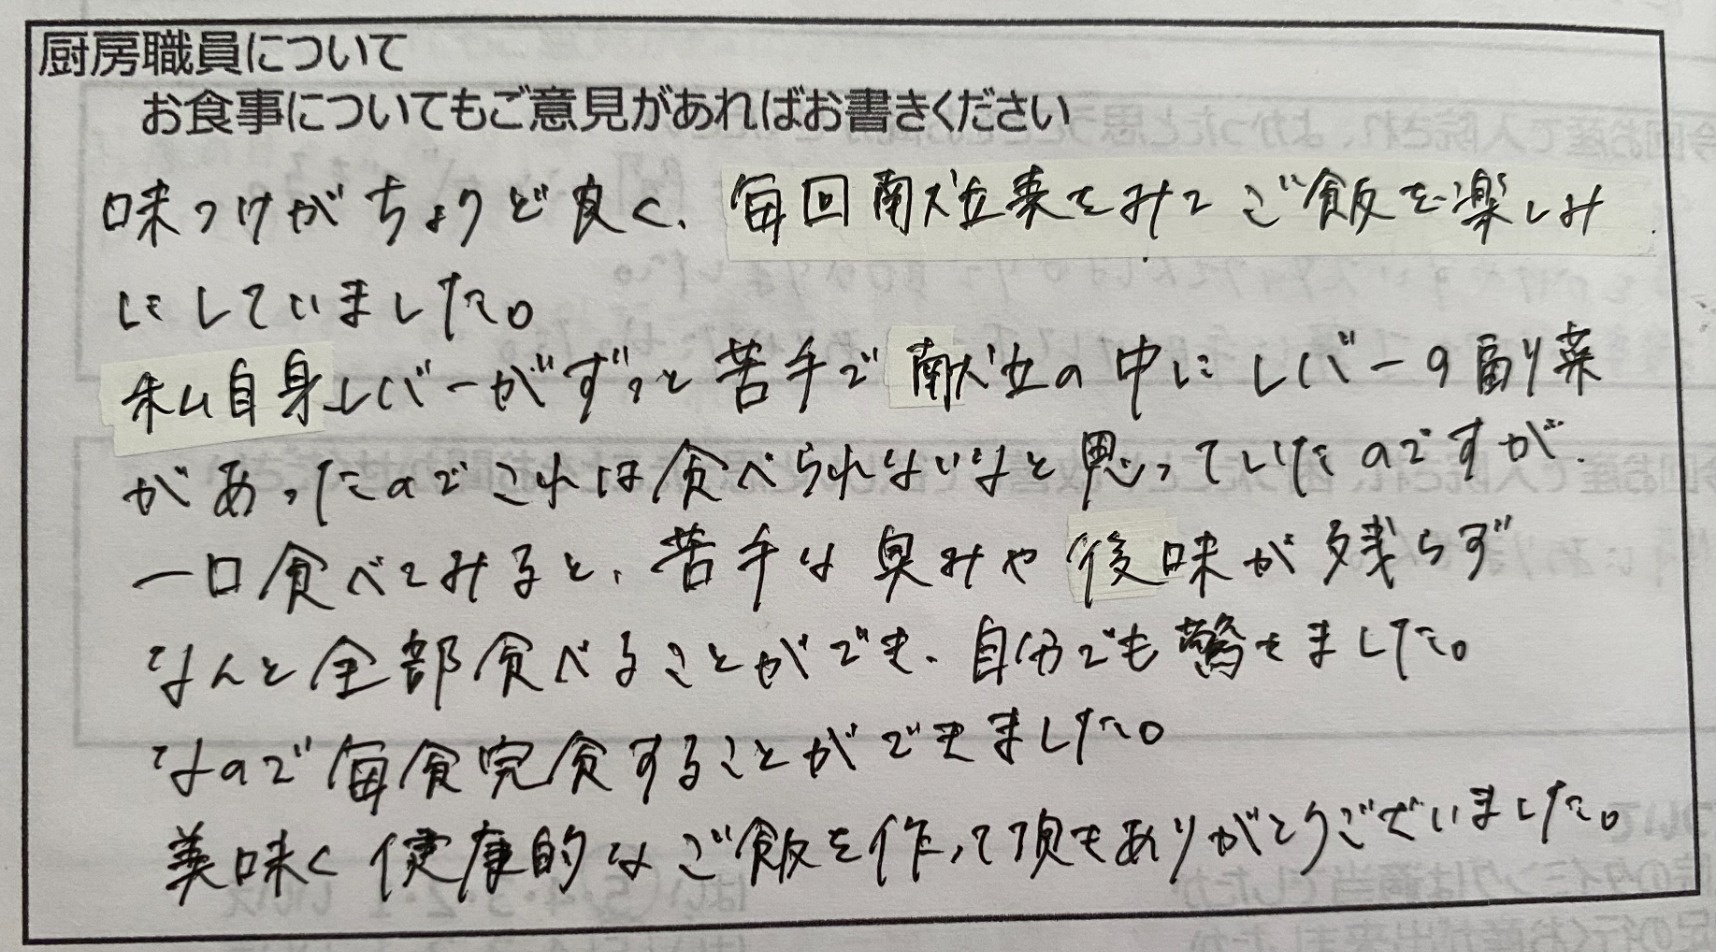 厨房職員について
お食事についてもご意見があればお書きください
味つけがちょうど良く、毎回献立表をみてご飯を楽しみ
にしていました。
私自身レバーがずっと苦手で献立の中にレバーの副菜
があったのでこれは食べられないなと思っていたのですが、
一口食べてみると、苦手な臭みや後味が残らず
なんと全部食べることができ、自分でも驚きました。
なので毎食完食することができました。
美味しく健康的なご飯を作って頂きありがとうございました。